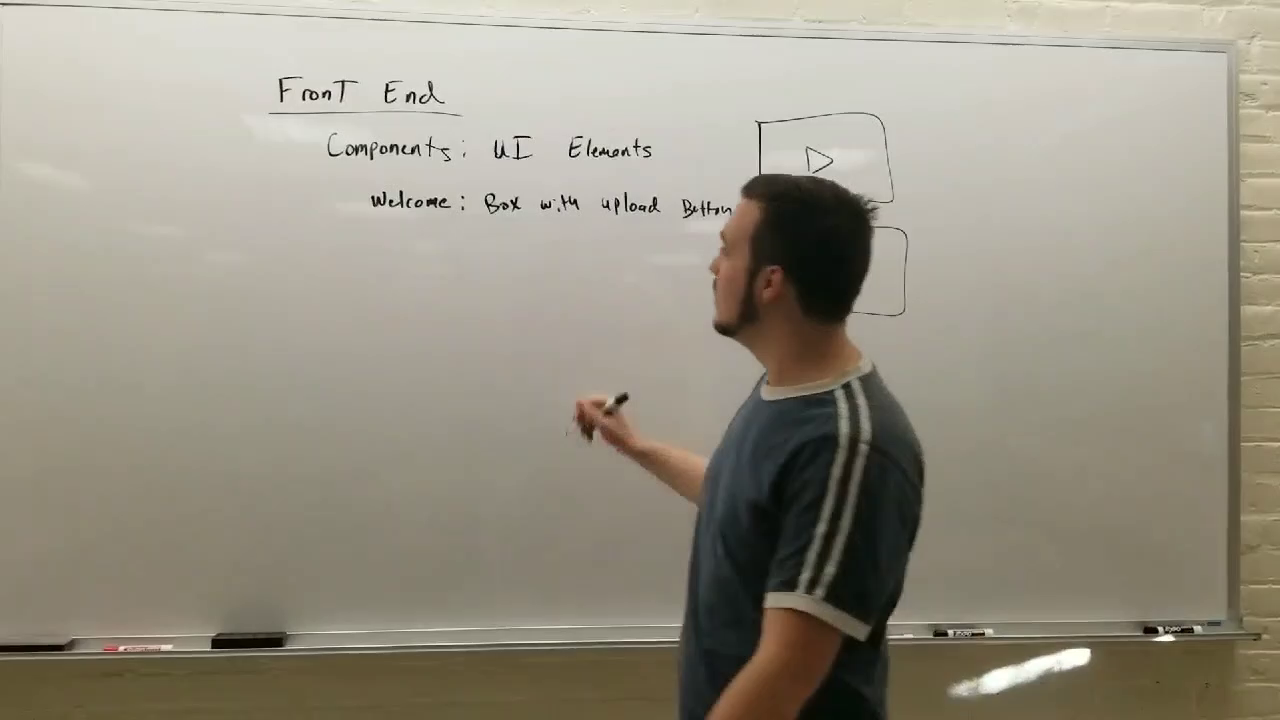 FronT End
Components: UI Elements
Welcome: Box with upload Button